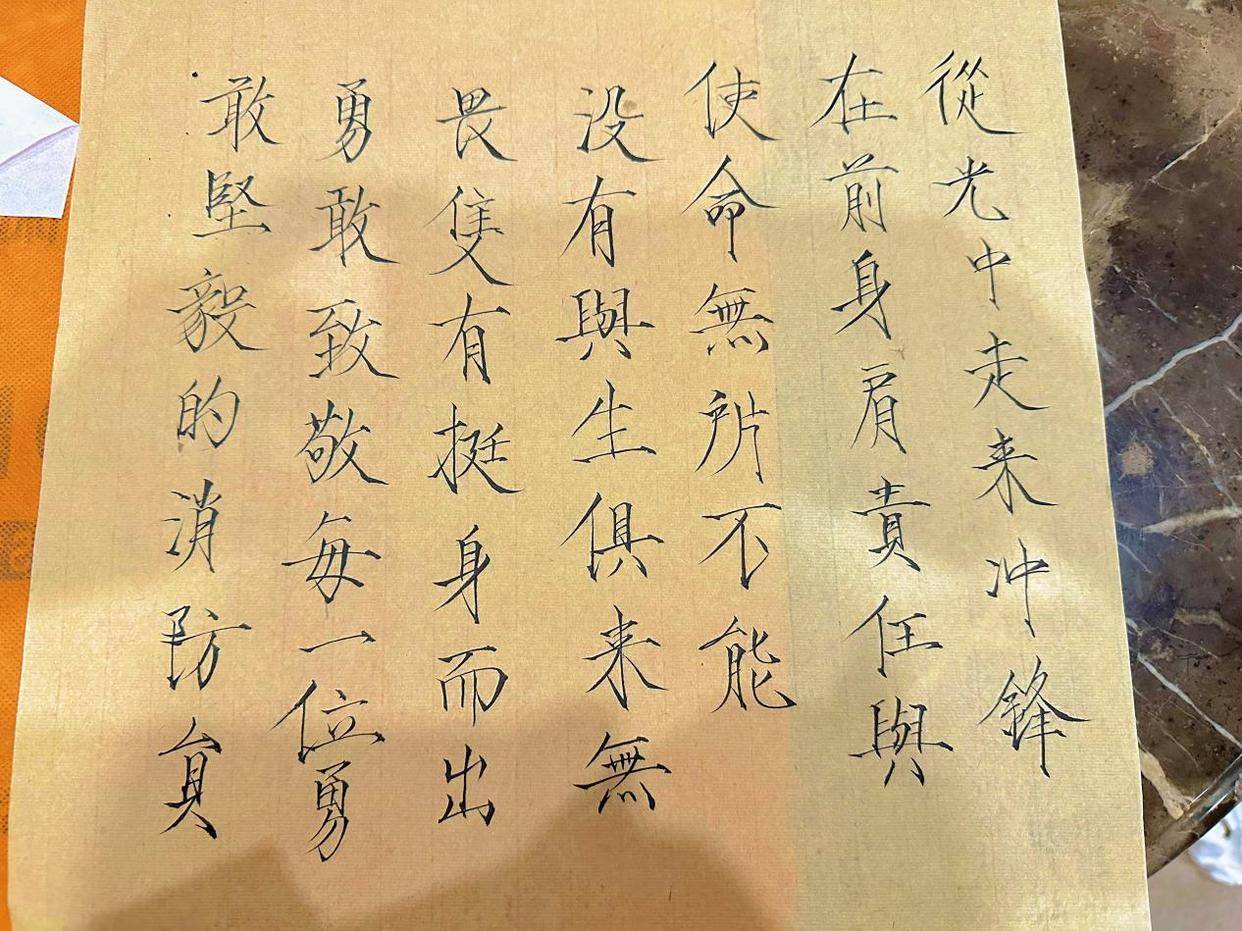 從光中走来冲鋒
在前身肩責任與
使命無所不能
没有與生俱来無
畏隻有挺身而出
勇敢致敬每一位勇
敢堅毅的消防員